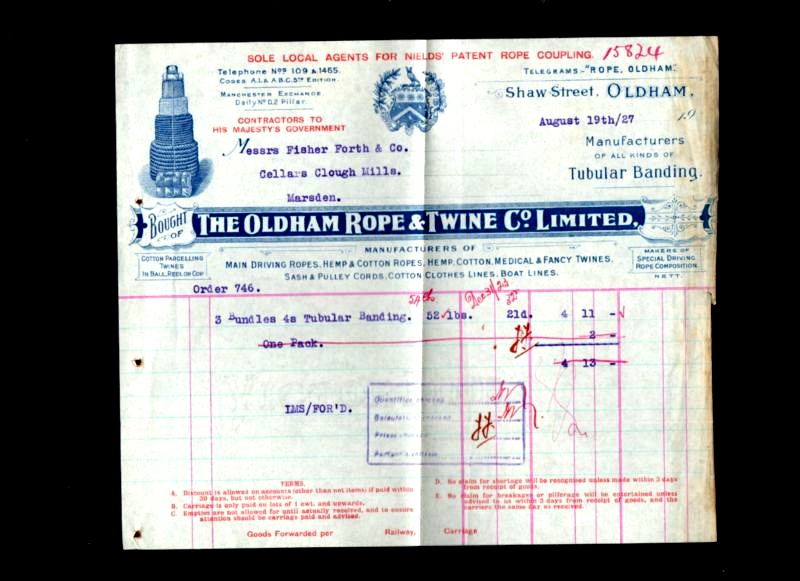 SOLE LOCAL AGENTS FOR NIELDS' PATENT ROPE COUPLING. 15824
Telephone Nos 109 & 1465.
Codes A.1. & A.B.C. 5TH Edition.
Manchester Exchange.
Daily No D.2 Pillar.
CONTRACTORS TO
HIS MAJESTY'S GOVERNMENT
TELEGRAMS:-"ROPE, OLDHAM."
Shaw Street, OLDHAM,
August 19th/27
Manufacturers
OF ALL KINDS OF
Tubular Banding.
Messrs Fisher Forth & Co.
Cellars Clough Mills.
Marsden.
BOUGHT OF
THE OLDHAM ROPE & TWINE CO. LIMITED.
COTTON PARCELLING
TWINES
IN BALL, REEL OR COP
MANUFACTURERS OF
MAIN DRIVING ROPES, HEMP & COTTON ROPES, HEMP, COTTON, MEDICAL & FANCY TWINES,
SASH & PULLEY CORDS, COTTON CLOTHES LINES, BOAT LINES.
MAKERS OF
SPECIAL DRIVING
ROPE COMPOSITION
NETT.
Order 746.
3 Bundles 4s Tubular Banding. 52 lbs. 21d. 4 11 -
One Pack. 2 -
4 13 -
IMS/FOR'D.
TERMS.
A. Discount is allowed on accounts (other than net items) if paid within
30 days, but not otherwise.
B. Carriage is only paid on lots of 1 cwt. and upwards.
C. Empties are not allowed for until actually received, and to ensure
attention should be carriage paid and advised.
D. No claim for shortage will be recognised unless made within 3 days
from receipt of goods.
E. No claim for breakages or pilferage will be entertained unless
advised to us within 3 days from receipt of goods, and the
carriers the same day as received.
Goods Forwarded per Railway, Carriage